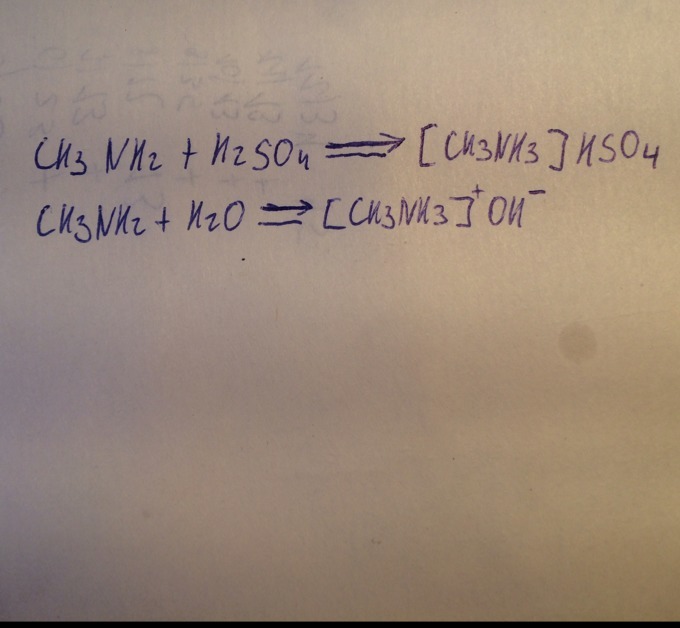 CH3NH2 + H2SO4 ⇒ [CH3NH3]HSO4
CH3NH2 + H2O ⇒ [CH3NH3]⁺OH⁻